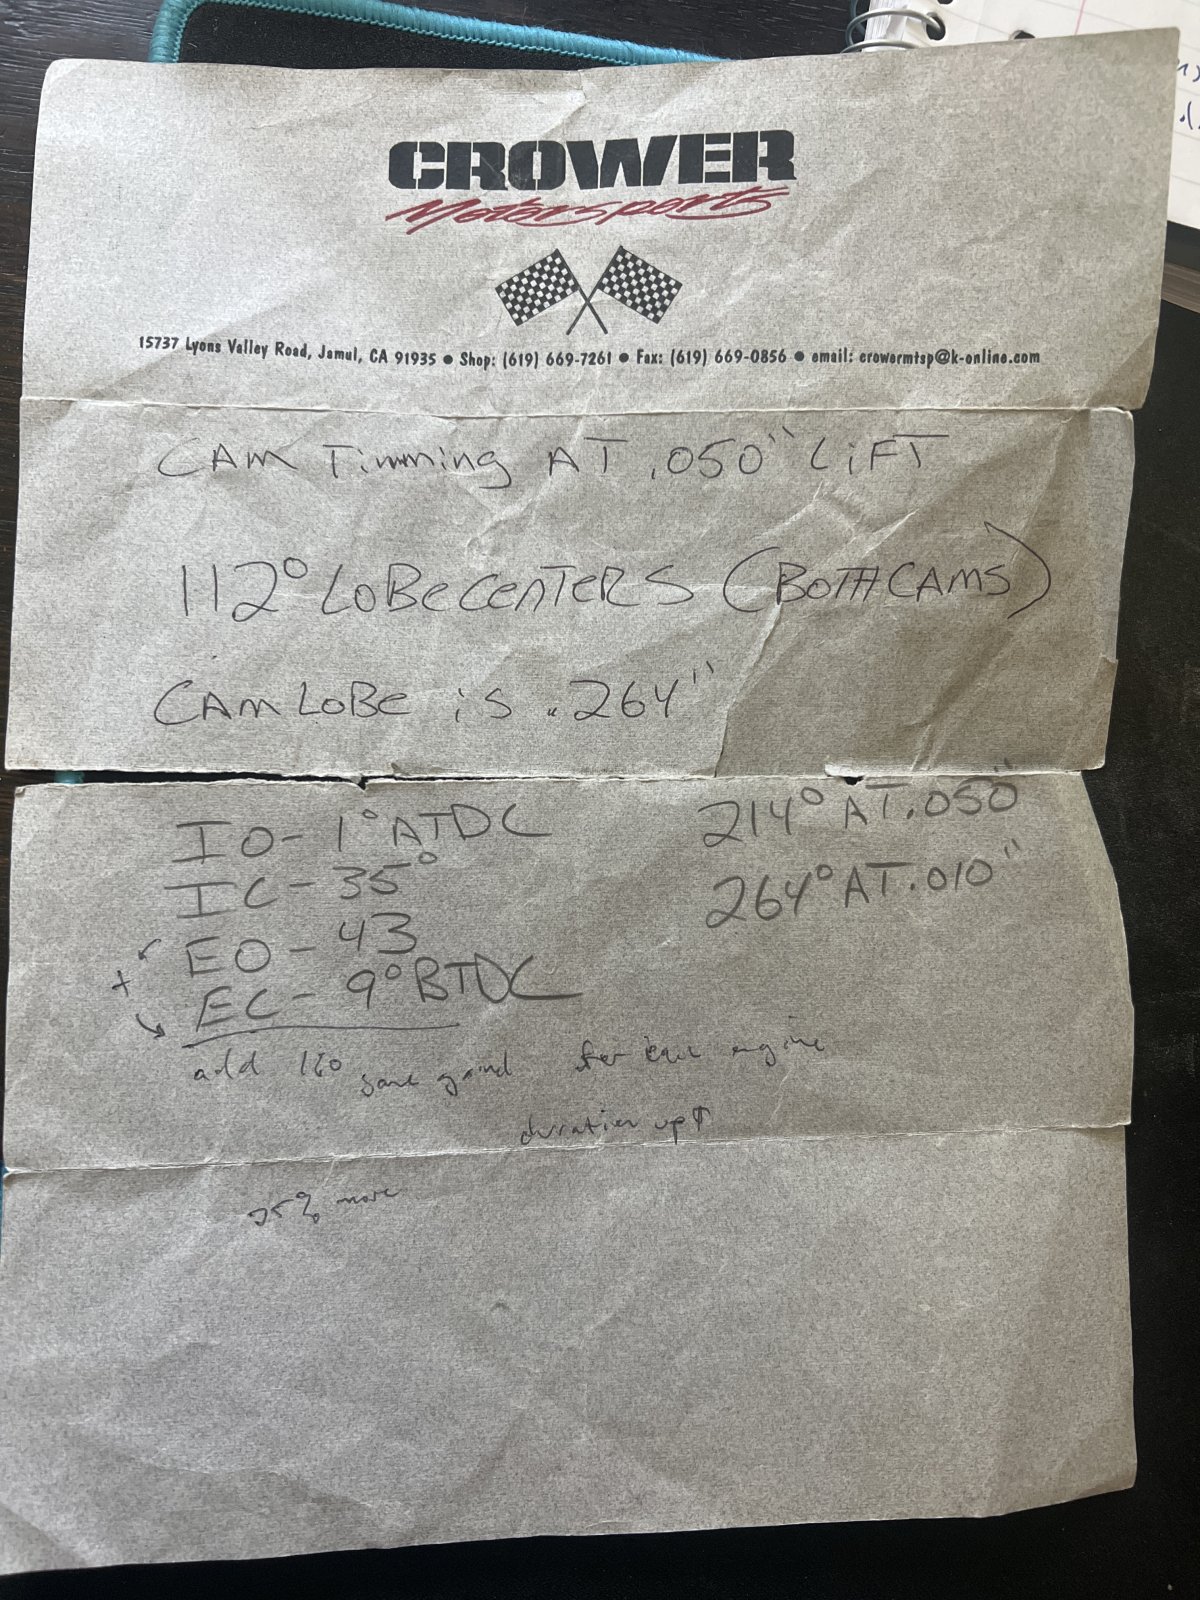 CROWER
Motorsports
15737 Lyons Valley Road, Jamul, CA 91935 ● Shop: (619) 669-7261 ● Fax: (619) 669-0856 ● email: crowermtsp@k-online.com
CAM Timming AT .050" LiFT
112° LOBE CENTERS (BOTH CAMS)
CAM LOBE is .264"
IO - 1° ATDC 214° AT .050"
IC - 35° 264° AT .010"
EO - 43
+
EC - 9° BTDC
add 180 same grind for each engine
duration up↑
25% more